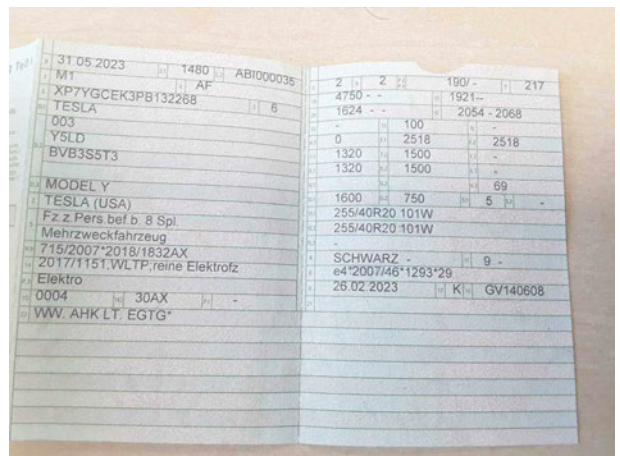 31.05.2023 1480 ABI000035
M1 AF
XP7YGCEK3PB132268 6
TESLA
003
Y5LD
BVB3S5T3
MODEL Y
TESLA (USA)
Fz.z.Pers.bef.b. 8 Spl.
Mehrzweckfahrzeug
715/2007*2018/1832AX
2017/1151,WLTP;reine Elektrofz
Elektro
0004 30AX -
WW. AHK LT. EGTG*
2 2 190/- 217
4750 - - 1921--
1624 - - 2054 - 2068
- 100 -
0 2518 2518
1320 1500 -
1320 1500 -
69
1600 750 5 -
255/40R20 101W
255/40R20 101W
-
SCHWARZ - 9 -
e4*2007/46*1293*29
26.02.2023 K GV140608